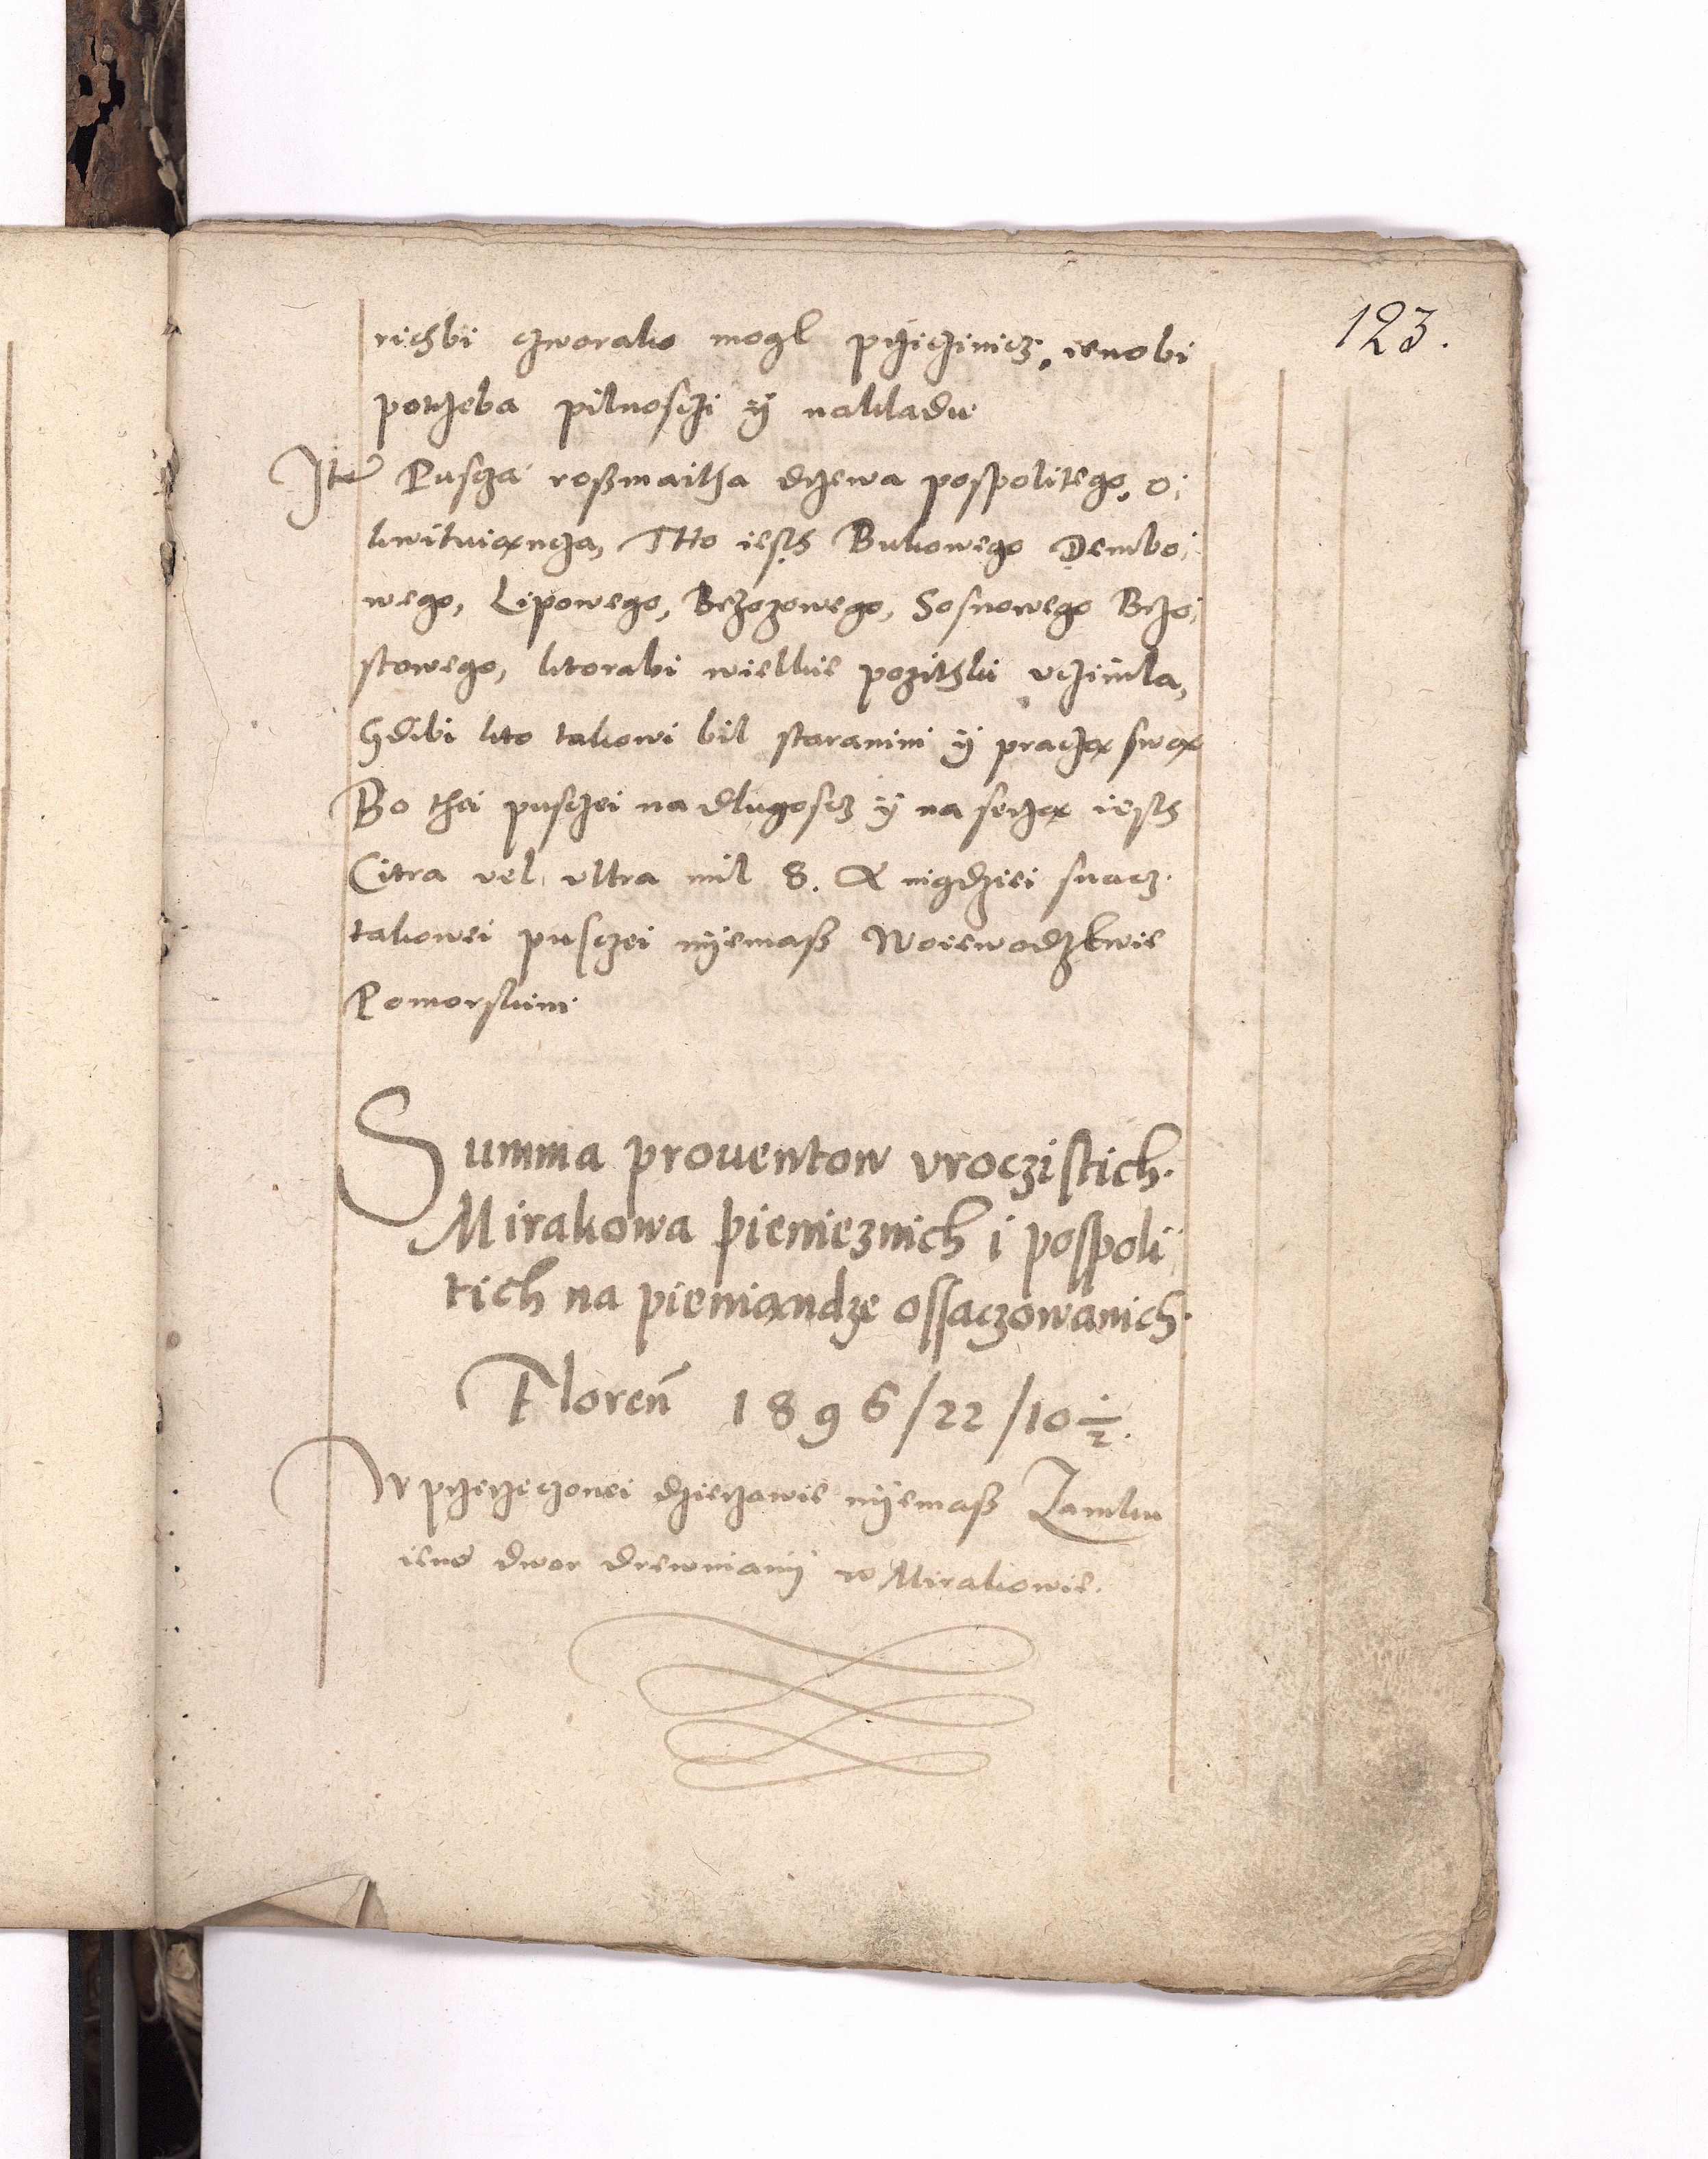 123.
richbi czworako mogl prziczinicz, ieno bi
potrzeba pilnosczi ÿ nakladu
Item Puscza roßmaitha drzewa pospolitego, o:
kwituiąncza, Tto iesth Bukowego Dembo:
wego, Lipowego, Brzozowego, Sosnowego Brzo:
stowego, ktorabi wielkie pozithki vczinila,
Gdibi kto takowi bil staranim ÿ praczą swą
Bo thei pusczei na dlugoscz ÿ na serzą iesth
Citra vel vltra mil 8. A nigdziei snacz
takowei pusczei nÿemaß Woiewodzkwie
Pomorskim
Summa prouentow vroczistich
Mirakowa pienieznich i pospoli
tich na pieniąndze ossaczowanich.
Floreñ 1896/22/10 1/2.
W przerzeczonei dzierzawie nÿemaß Zamku
ieno dwor drewnianÿ w Mirakowie.